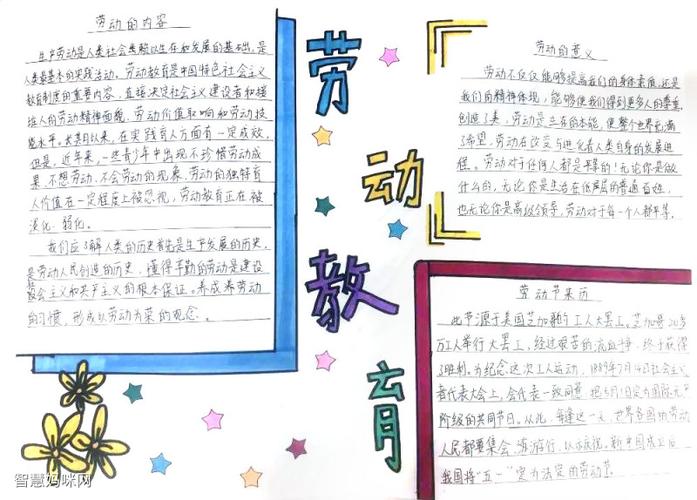 劳动的内容
生产劳动是人类社会赖以生存和发展的基础,是
人类最基本的实践活动。劳动教育是中国特色社会主义
教育制度的重要内容,直接决定社会主义建设者和接
班人的劳动精神面貌、劳动价值取向和劳动技
能水平。长期以来,在实践育人方面有一定成效。
但是,近年来,一些青少年中出现不珍惜劳动成
果、不想劳动、不会劳动的现象,劳动的独特育
人价值在一定程度上被忽视,劳动教育正在被
淡化、弱化。
我们应了解人类的历史首先是生产发展的历史,
是劳动人民创造的历史,懂得辛勤的劳动是建设
社会主义和共产主义的根本保证。养成养劳动
的习惯,形成以劳动为荣的观念。
劳动教育
劳动的意义
劳动不仅仅能够提高我们的身体素质,还是
我们的精神体现,能够使我们得到更多人的尊重,
创造了美,劳动是生存的本能,使整个世界充满
了希望,劳动在改变与进化着人类自身的发展进
程。劳动对于任何人都是平等的!无论你是做
什么的,无论你是生活在低层的普通百姓,
也无论你是高级领导,劳动对于每一个人都平等。
劳动节来历
此节源于美国芝加哥的工人大罢工。芝加哥20多
万工人举行大罢工,经过艰苦的流血斗争,终于获得
了胜利。为纪念这次工人运动,1889年7月14日社会主义
者代表大会上,会代表一致同意,把5月1日定为国际无产
阶级的共同节日。从此,每逢这一天,世界各国的劳动
人民都要集会、游行,以示庆祝。新中国成立后
我国将"五一"定为法定的劳动节。
智慧妈咪网